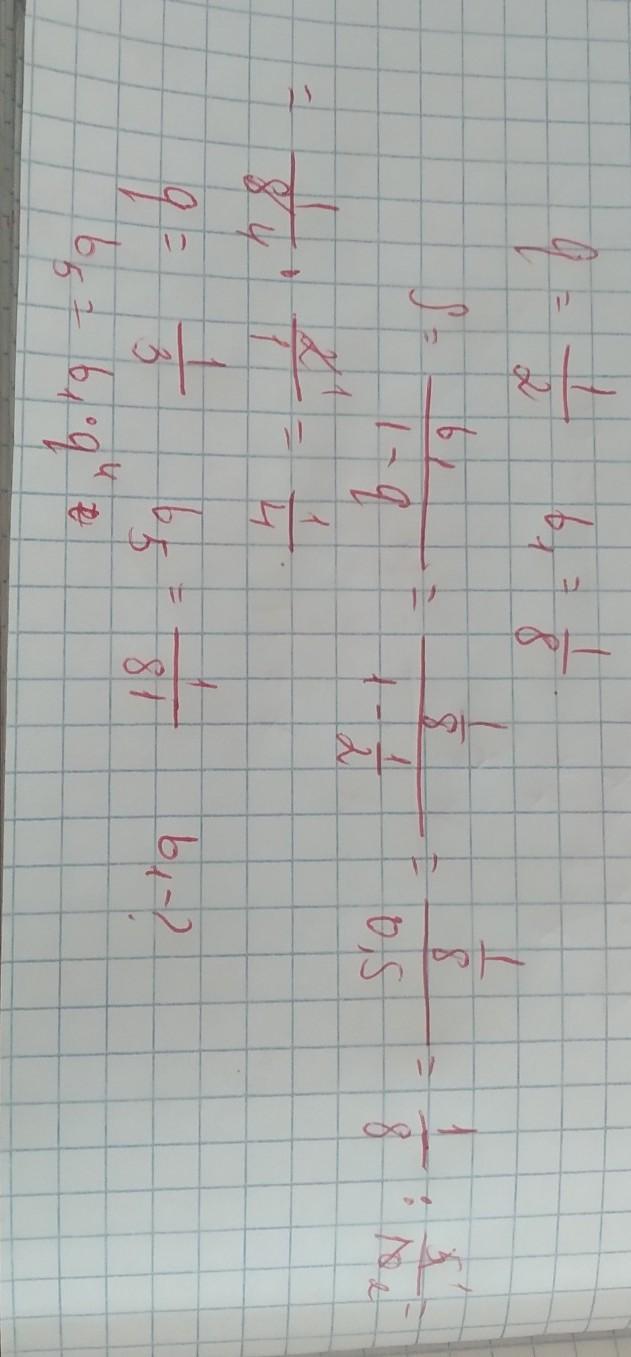 q = 1/2   b₁ = 1/8.
S = b₁/(1-q) = (1/8)/(1-1/2) = (1/8)/0,5 = 1/8 : 5¹/10₂ =
= 1/8₄ · 2¹/1 = 1/4.
q = 1/3   b₅ = 1/81   b₁-?
b₅ = b₁·q⁴